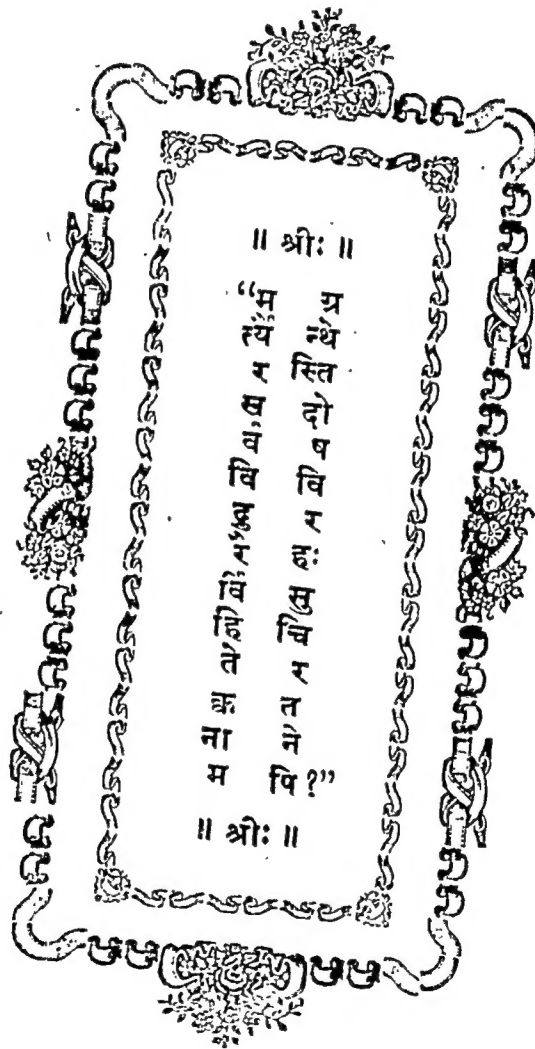 ॥ श्रीः ॥
“मर्त्यैरसर्वविदुरैर्विहिते क्व नाम
ग्रन्थेस्ति दोषविरहः सुचिरतनेपि?”
॥ श्रीः ॥